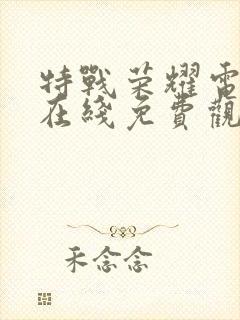 特戰榮耀電
在綫免費觀
禾念念